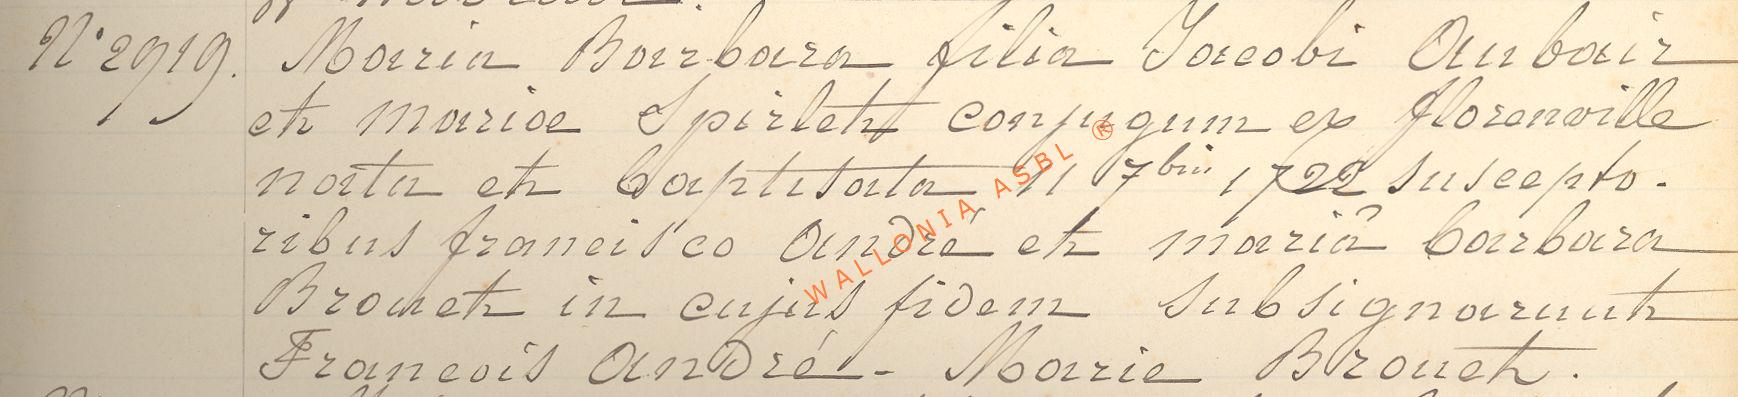 N° 2919. Maria Barbara filia Jacobi Aubair
et mariae Spirlet conjugum ex florenville
nata et baptisata 11 7bris 1722 suscepto-
ribus francisco André et mariâ barbara
Brouet in cujus fidem subsignarunt
Francois André - Marie Brouet.
WALLONIA ASBL ®